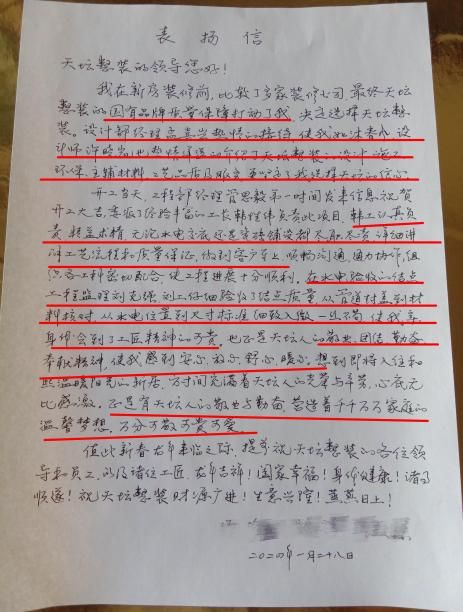 表扬信
天坛整装的领导您好!
我在新房装修前,比较了多家装修公司,最终天坛
整装的国有品牌质量保障打动了我,决定选择天坛整
装。设计部经理孟真兴热情的接待,使我如沐春风,设
计师许晓岩也热情详细的介绍了天坛整装,设计,施工
环保,主辅材料,工艺品质及服务,更坚定了我选择天坛的信心
开工当天,工程部经理管思毅第一时间发来信息祝贺
开工大吉,委派了经验丰富的工长韩继伟负责此项目,韩工认真负
责,精益求精,无论水电交底还是瓷砖铺设都尽职尽责,详细讲
解工艺流程和质量保证,做到客户至上,顺畅沟通,通力协作,组
织各工种密切配合,使工程进展十分顺利。在水电验收的结点
工程监理刘克强,刘工仔细验收了结点质量,从管道封盖到材
料核对,从水电位置到尺寸标准细致入微,一丝不苟,使我亲
身体会到了工匠精神的可贵。也正是天坛人的敬业、团结、勤奋
奉献精神,使我感到安心、放心、舒心、暖心。想到即将入住和
煦温暖阳光的新居,方寸间充满着天坛人的光荣与辛劳,心底无
比感激。还是有天坛人的敬业与勤奋,营造着千千万万家庭的
温馨梦想,万分可敬可贵可爱。
值此新春龙年来临之际,提前祝天坛整装的各位领
导和员工,以及诸位工匠,龙年吉祥!阖家幸福!身体健康!诸事
顺遂!祝天坛整装财源广进!生意兴隆!蒸蒸日上!
二〇二四年一月二十八日